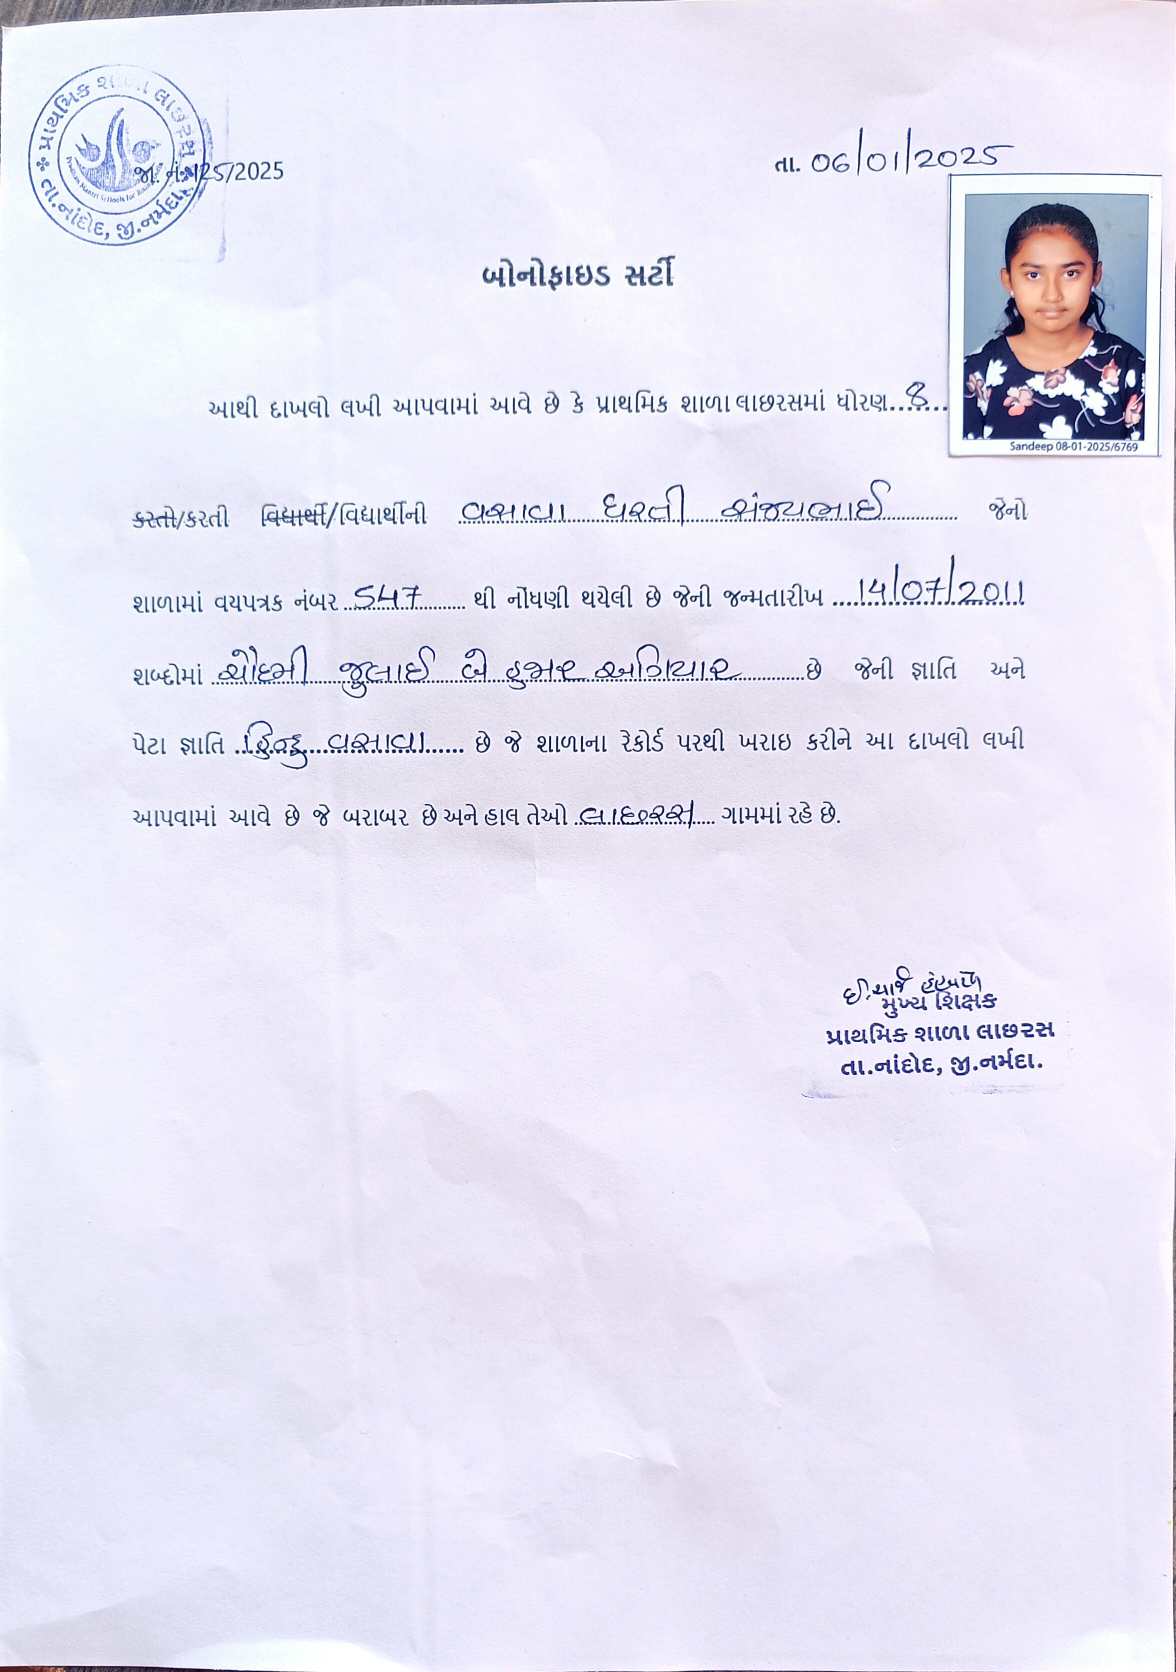 પ્રાથમિક શાળા લાછરસ
તા.નાંદોદ, જી.નર્મદા
જા. નં.125/2025
તા. 06/01/2025
બોનોફાઇડ સર્ટી
Sandeep 08-01-2025/6769
આથી દાખલો લખી આપવામાં આવે છે કે પ્રાથમિક શાળા લાછરસમાં ધોરણ..8....
કરતો/કરતી વિદ્યાર્થી/વિદ્યાર્થીની વસાવા ધરતી સંજયભાઈ જેનો
શાળામાં વયપત્રક નંબર 547 થી નોંધણી થયેલી છે જેની જન્મતારીખ 14/07/2011
શબ્દોમાં ચૌદમી જુલાઈ બે હજાર અગિયાર છે જેની જ્ઞાતિ અને
પેટા જ્ઞાતિ હિન્દુ વસાવા છે જે શાળાના રેકોર્ડ પરથી ખરાઇ કરીને આ દાખલો લખી
આપવામાં આવે છે જે બરાબર છે અને હાલ તેઓ લાછરસ ગામમાં રહે છે.
મુખ્ય શિક્ષક
પ્રાથમિક શાળા લાછરસ
તા.નાંદોદ, જી.નર્મદા.